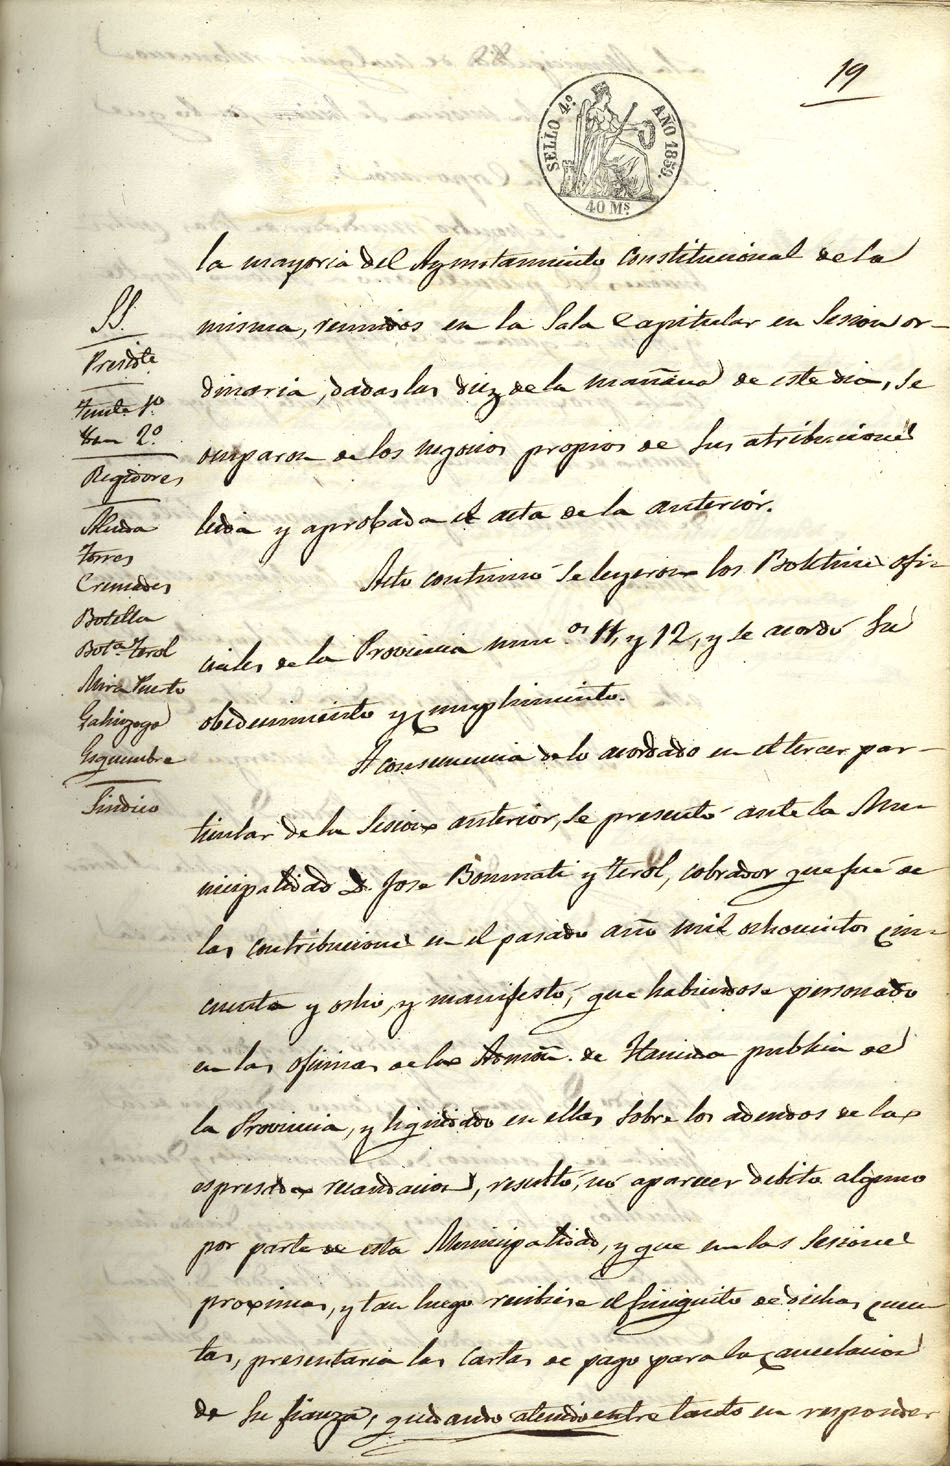 19
SELLO 4.º AÑO 1859.
40 Ms
la mayoria del Ayuntamiento Constitucional de la
misma, reunidos en la Sala Capitular en Sesion or-
dinaria, dadas las diez de la mañana de este dia, se
ocuparon de los negocios propios de sus atribuciones
leida y aprobada el acta de la anterior.
Acto continuó se leyeron los Boletines ofi-
ciales de la Provincia num.os 11, y 12, y se acordó su
obedecimiento y cumplimiento.
A consecuencia de lo acordado en el tercer par-
ticular de la Sesion anterior, se presentó ante la Mu-
nicipalidad D. Jose Bonmati y Terol, cobrador que fué de
las contribuciones en el pasado año mil ochocientos cin-
cuenta y ocho, y manifestó, que habiendose personado
en las oficinas de la Admon. de Hacienda publica de
la Provincia, y liquidado en ellas sobre los adeudos de la
espresada recaudacion, resultó, nó aparecer debito alguno
por parte de esta Municipalidad, y que en las Sesiones
proximas, y tan luego recibiese el finiquito de dichas cuen-
tas, presentaria las cartas de pago para la cancelacion
de su fianza, quedando atenido entre tanto en responder
SS.
Presidte
Tente 1º
Idem 2º
Regidores
Alenda
Torres
Cremades
Botella
Bota Terol
Mira Puerto
Galinzoga
Esquembre
Sindico